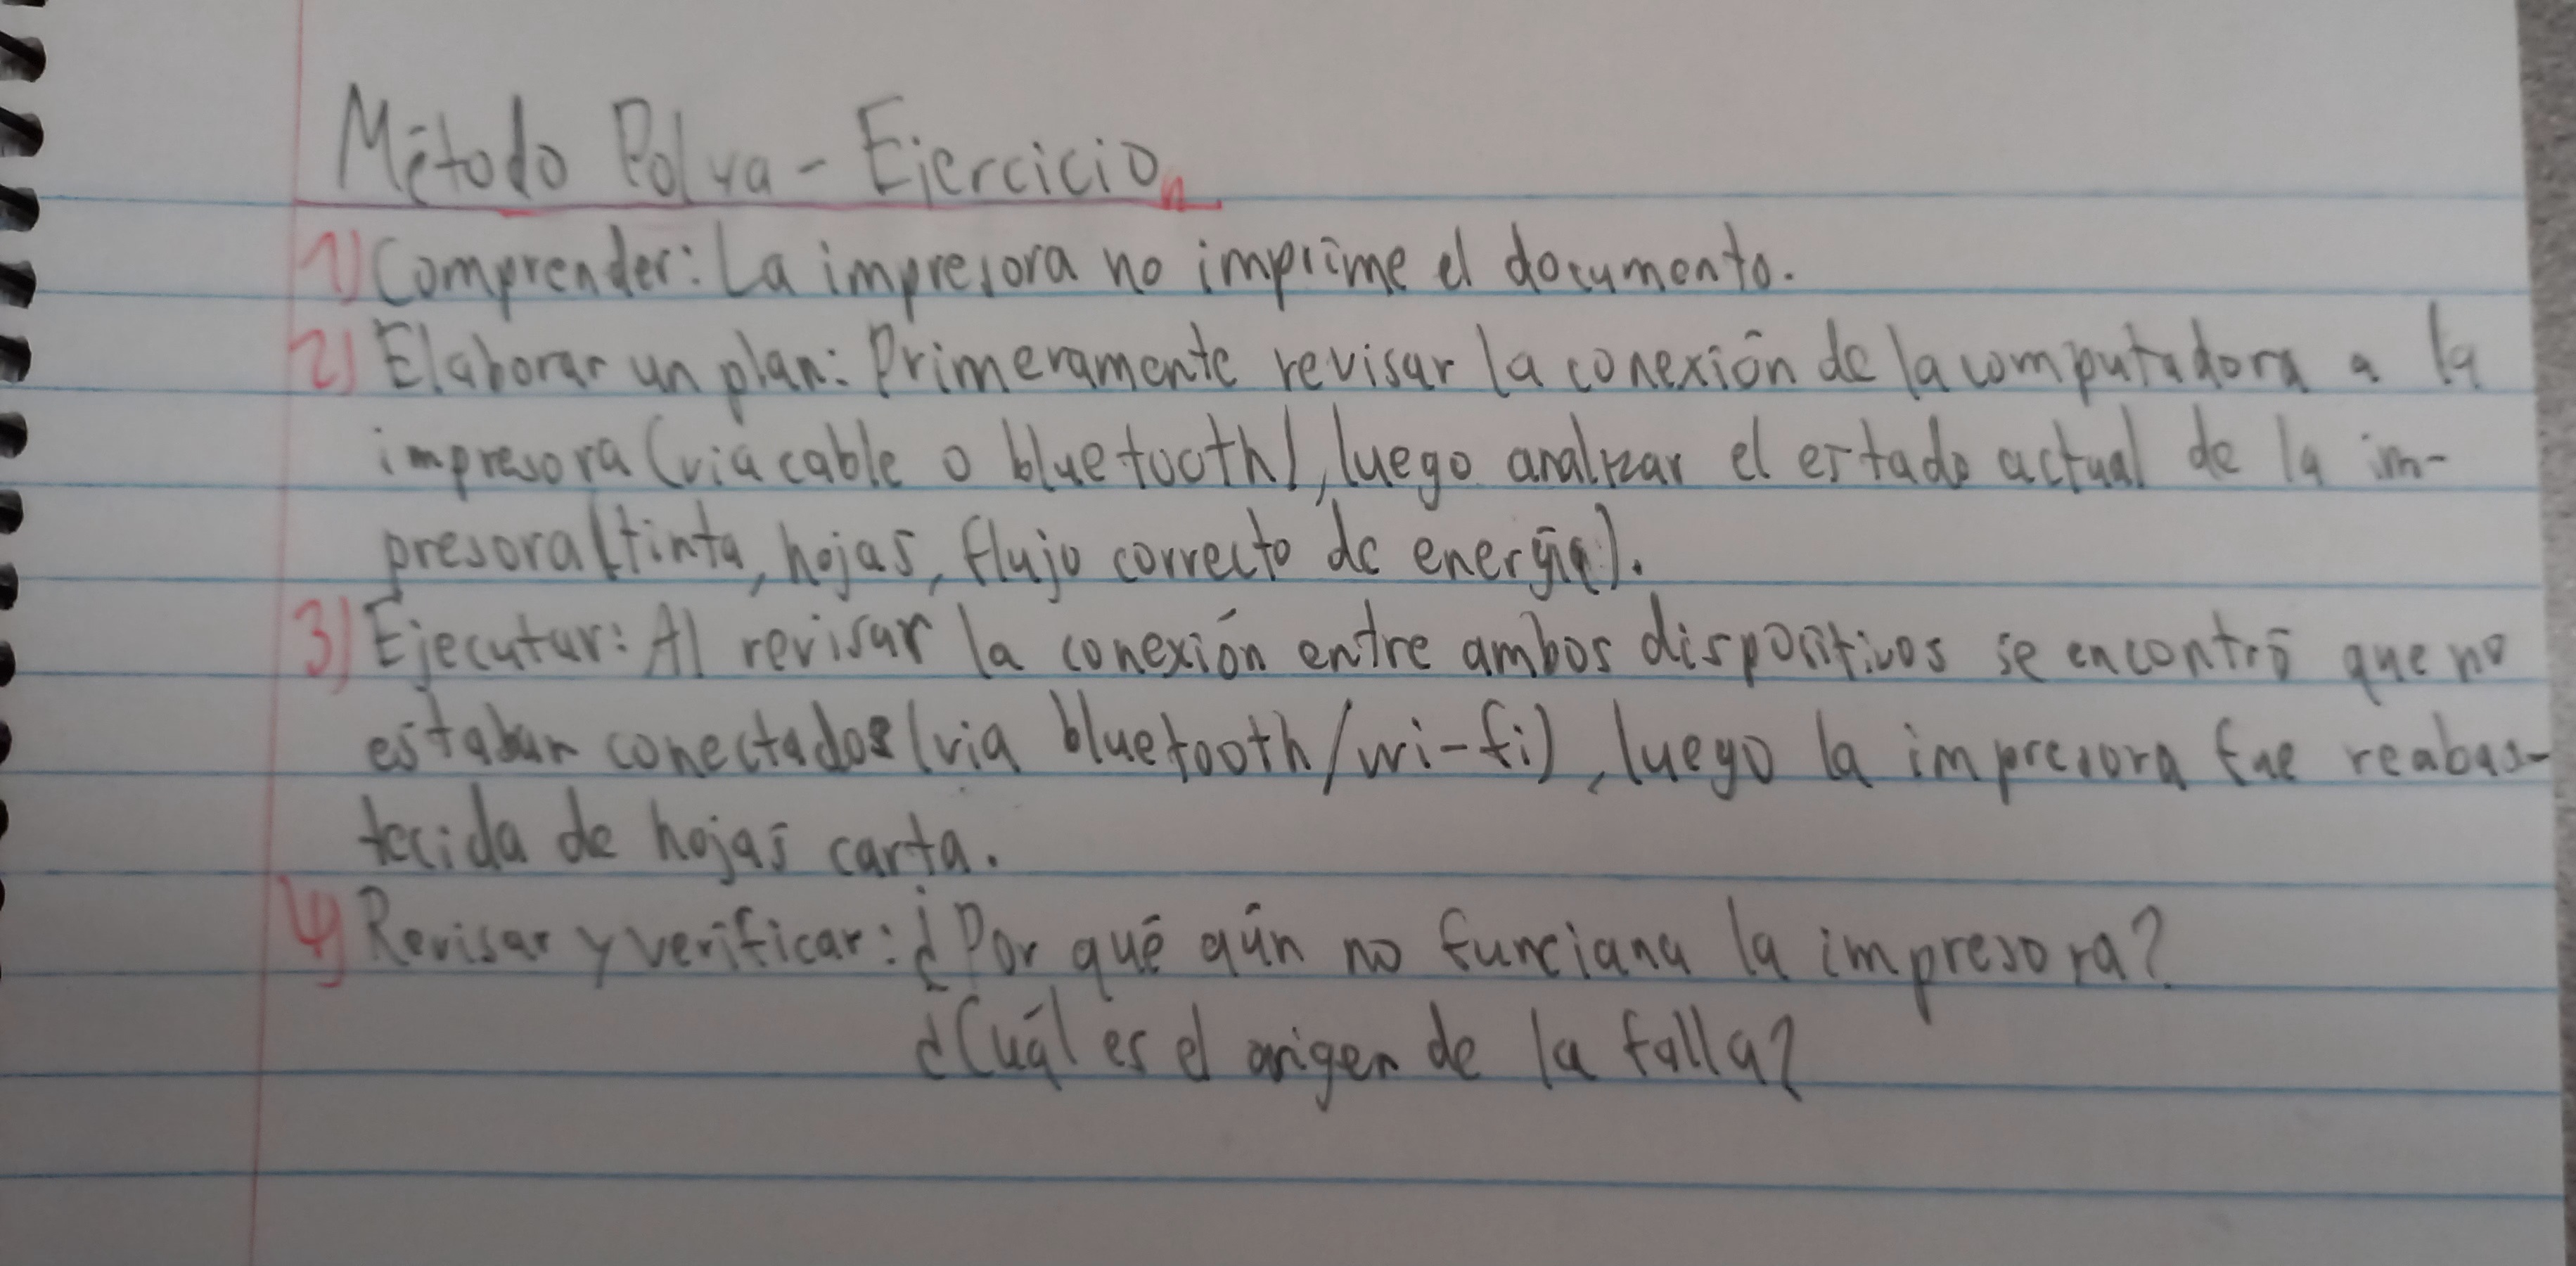 Método Polya - Ejercicio
1) Comprender: La impresora no imprime el documento.
2) Elaborar un plan: Primeramente revisar la conexión de la computadora a la
impresora (via cable o bluetooth), luego analizar el estado actual de la im-
presora (tinta, hojas, flujo correcto de energía).
3) Ejecutar: Al revisar la conexión entre ambos dispositivos se encontró que no
estaban conectados (via bluetooth/wi-fi), luego la impresora fue reabas-
tecida de hojas carta.
4) Revisar y verificar: ¿Por qué aún no funciona la impresora?
¿Cuál es el origen de la falla?